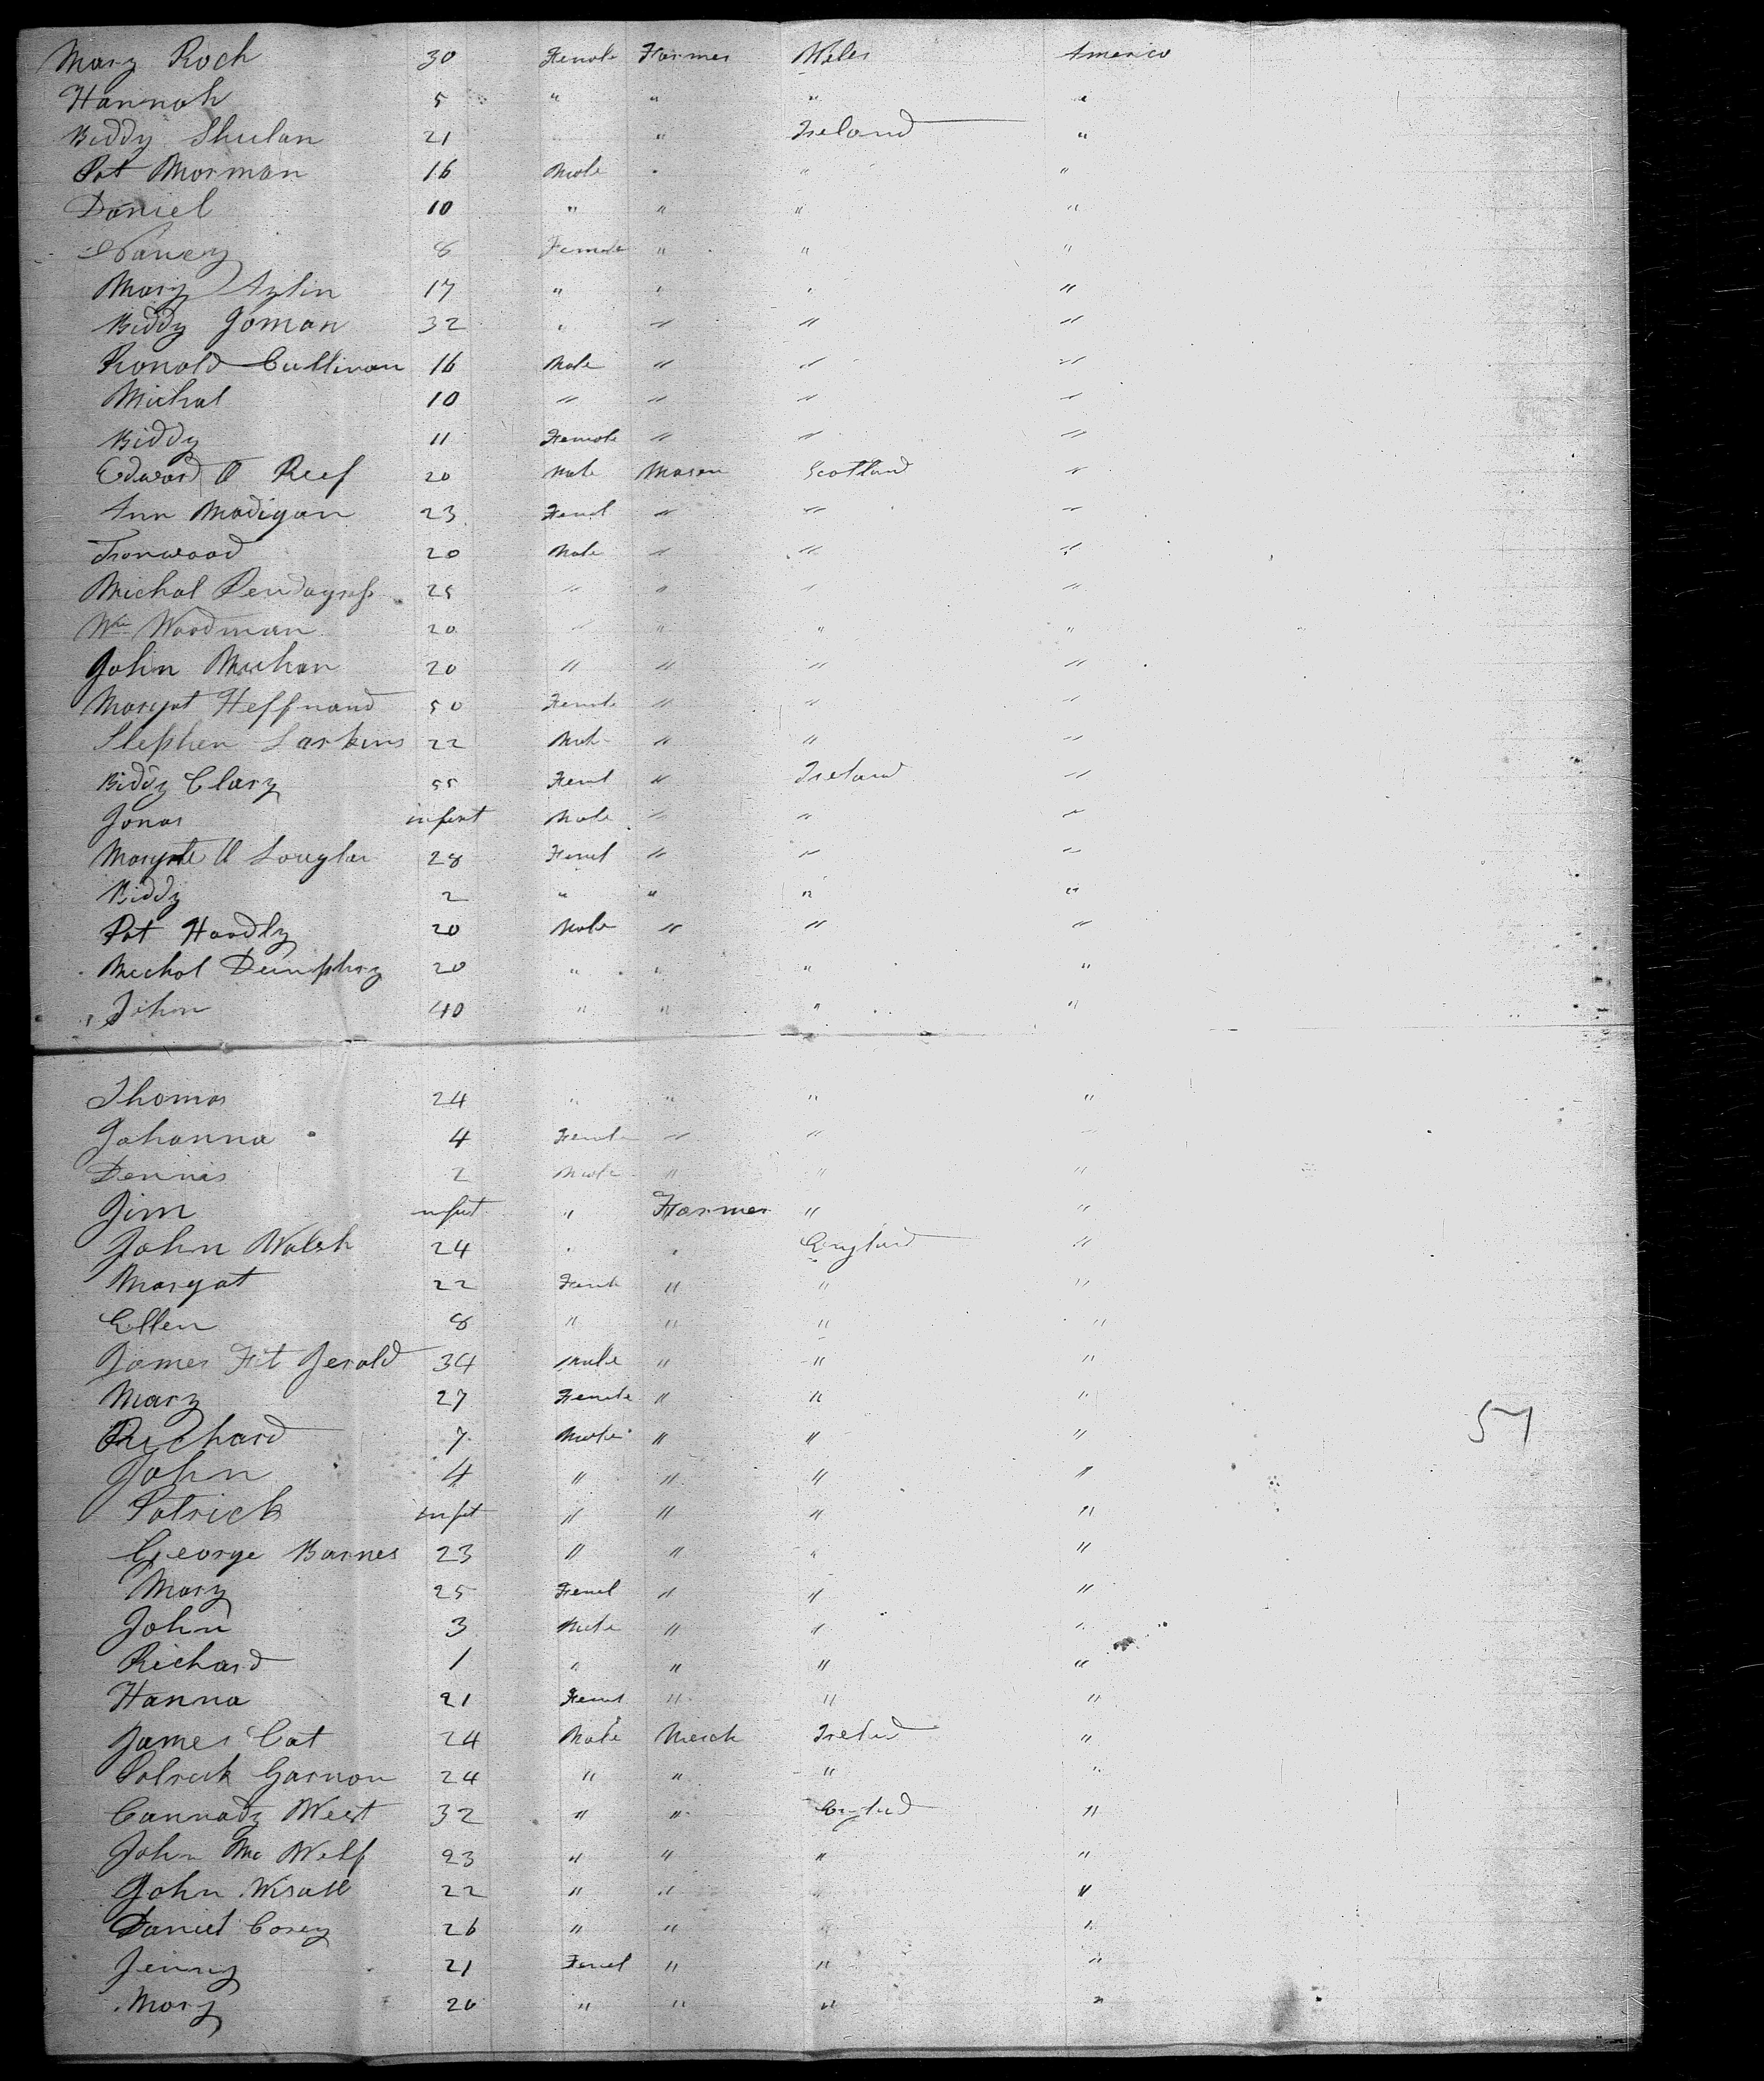 Mary Roch 30 Female Farmer Wales America
Hannah 5 " " " "
Biddy Shulan 21 " Ireland "
Pat Morman 16 Male " " "
Daniel 10 " " " "
Nancy 8 Female " " "
Mary Aylin 17 " " " "
Biddy Goman 32 " " " "
Ronald Cullivan 16 Male " " "
Michal 10 " " " "
Biddy 11 Female " " "
Edward O Reef 20 Male Mason Scotland "
Ann Madigan 23 Femal " " "
Ironwood 20 Male " " "
Michal Pendagrass 25 " " " "
Wm Woodman 20 " " " "
John Muhan 20 " " " "
Margat Heffnand 50 Female " " "
Stephen Larkins 22 Male " " "
Biddy Clary 55 Feml " Ireland "
Jonas infant Male " " "
28 Femal " " "
Biddy 2 " " " "
Pat Handly 20 Male " " "
Michal Dumphry 20 " " " "
John 40 " " " "
Thomas 24 " " " "
Johanna 4 Female " " "
Dennis 2 Male " " "
Jim infant " Farmer " "
John Walsh 24 " " England "
Margat 22 Female " " "
Ellen 8 " " " "
James Fit Jerald 34 Male " " "
Mary 27 Female " " "
Richard 7 Male " " "
57
John 4 " " " "
Patrick infat " " " "
George Barnes 23 " " " "
Mary 25 Femal " " "
John 3 Male " " "
Richard 1 " " " "
Hanna 21 Femal " " "
James Cat 24 Male Merch Ireland "
Patrick Garnon 24 " " " "
Cannady West 32 " " England "
John Mc Welf 23 " " " "
John 22 " " " "
Daniel Cosey 26 " " " "
Jenny 21 Femal " " "
Mary 20 " " " "